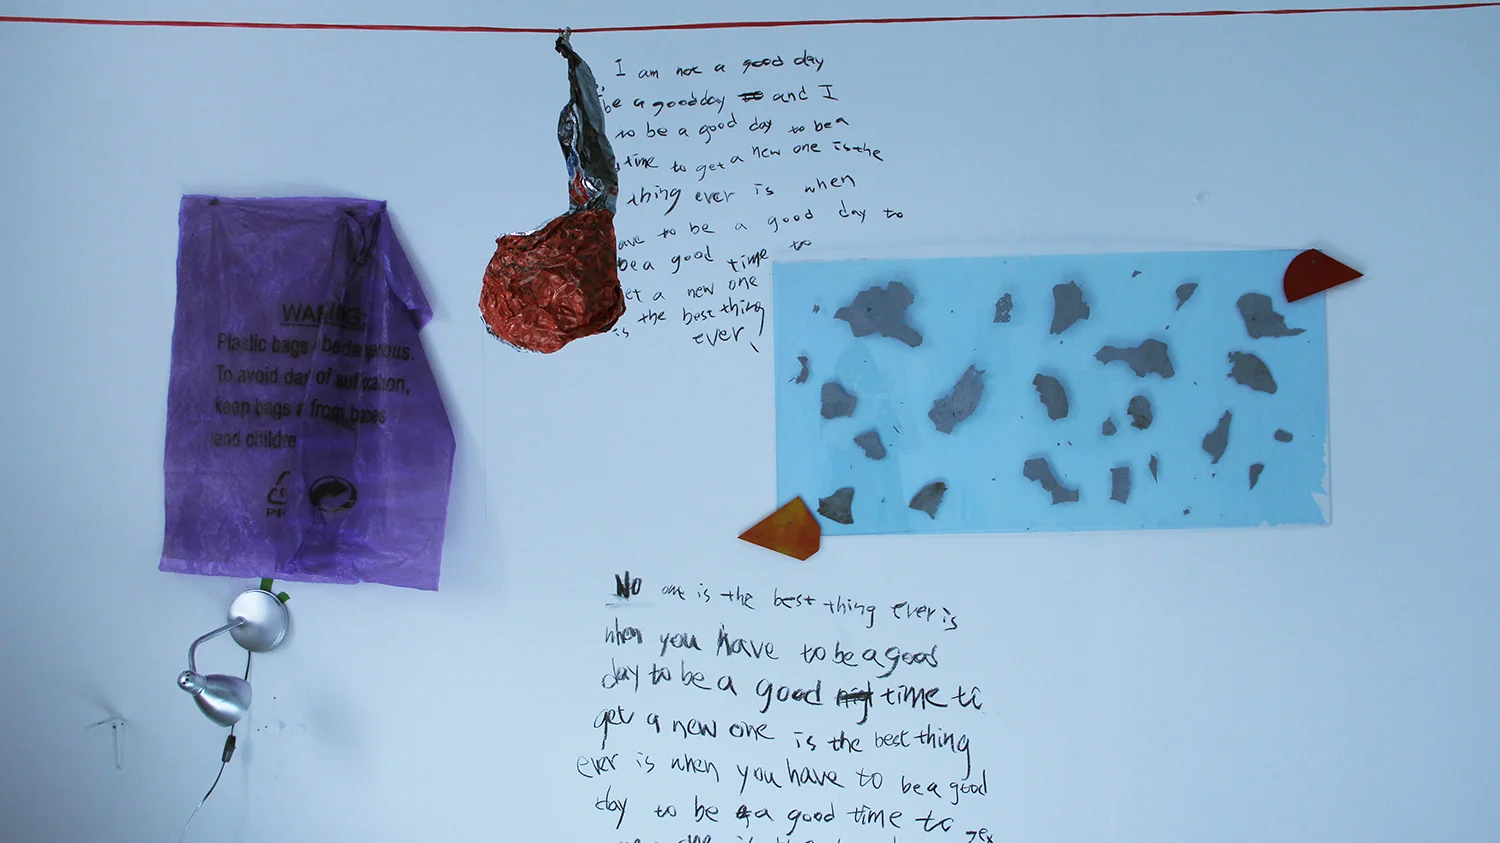 WARNING:
Plastic bags be dangerous.
To avoid dan of suffocation,
keep bags a from babes
and childre
I am not a good day
be a goodday and I
to be a good day to be a
time to get a new one is the
thing ever is when
ave to be a good day to
be a good time to
et a new one
is the best thing
ever.
No one is the best thing ever is
when you have to be a good
day to be a good time to
get a new one is the best thing
ever is when you have to be a good
day to be a good time to get